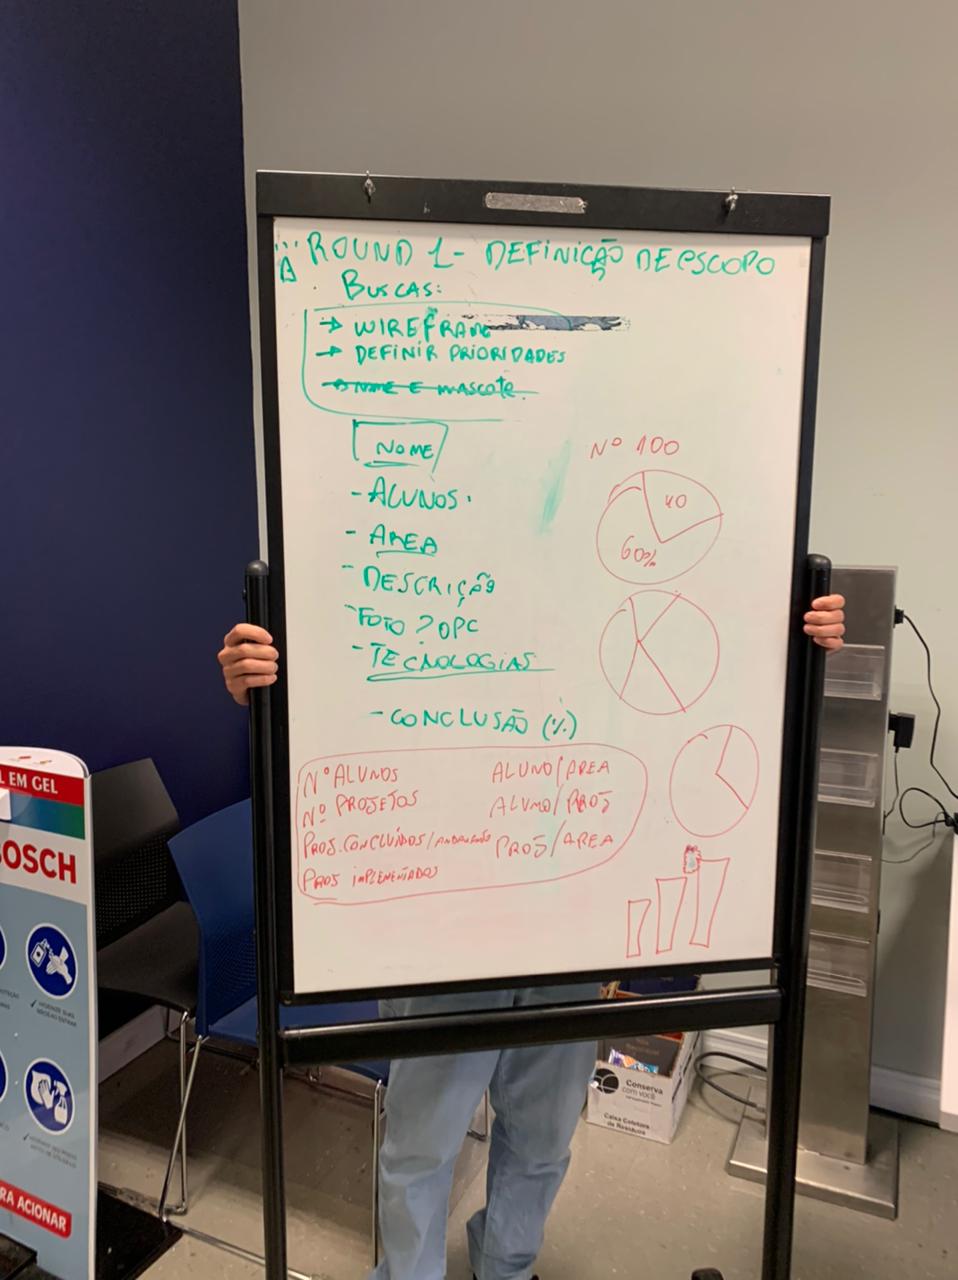 ROUND 1 - DEFINIÇÃO DE ESCOPO
BUSCAS:
→ WIREFRAME
→ DEFINIR PRIORIDADES
NOME E MASCOTE.
NOME
- ALUNOS.
- AREA
- DESCRIÇÃO
- FOTO? OPC
- TECNOLOGIAS
- CONCLUSÃO (%)
Nº 100
40
60%
Nº ALUNOS
Nº PROJETOS
PROJ. CONCLUÍDOS/ANDAMENTO
PROJ IMPLEMENTADOS
ALUNO/AREA
ALUNO/PROJ
PROJ/AREA
L EM GEL
BOSCH
RA ACIONAR
Conserva
com você
Caixa Coletora
de Resíduos